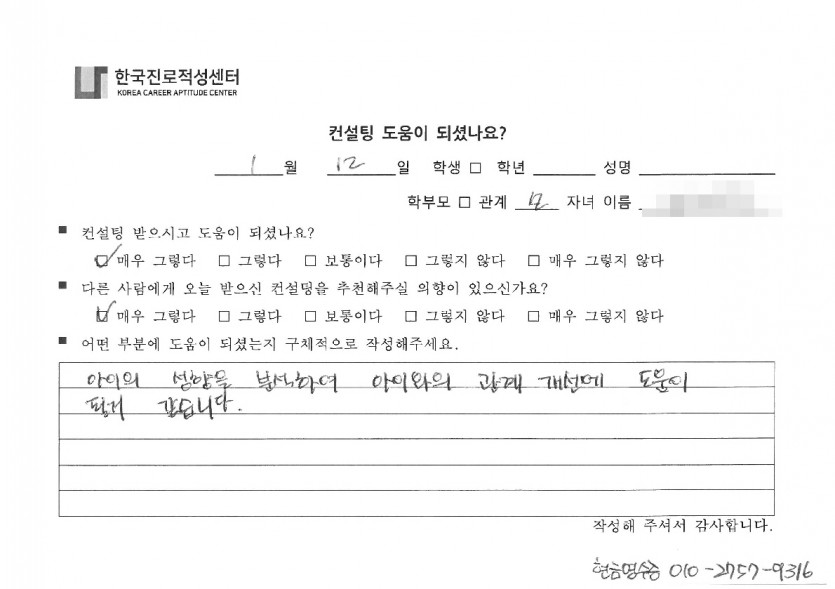 한국진로적성센터
KOREA CAREER APTITUDE CENTER
컨설팅 도움이 되셨나요?
1 월 12 일 학생 □ 학년 성명
학부모 □ 관계 모 자녀 이름
■ 컨설팅 받으시고 도움이 되셨나요?
☑ 매우 그렇다 □ 그렇다 □ 보통이다 □ 그렇지 않다 □ 매우 그렇지 않다
■ 다른 사람에게 오늘 받으신 컨설팅을 추천해주실 의향이 있으신가요?
☑ 매우 그렇다 □ 그렇다 □ 보통이다 □ 그렇지 않다 □ 매우 그렇지 않다
■ 어떤 부분에 도움이 되셨는지 구체적으로 작성해주세요.
아이의 성향을 분석하여 아이와의 관계 개선에 도움이
될거 같습니다.
작성해 주셔서 감사합니다.
현금영수증 010-2757-9316